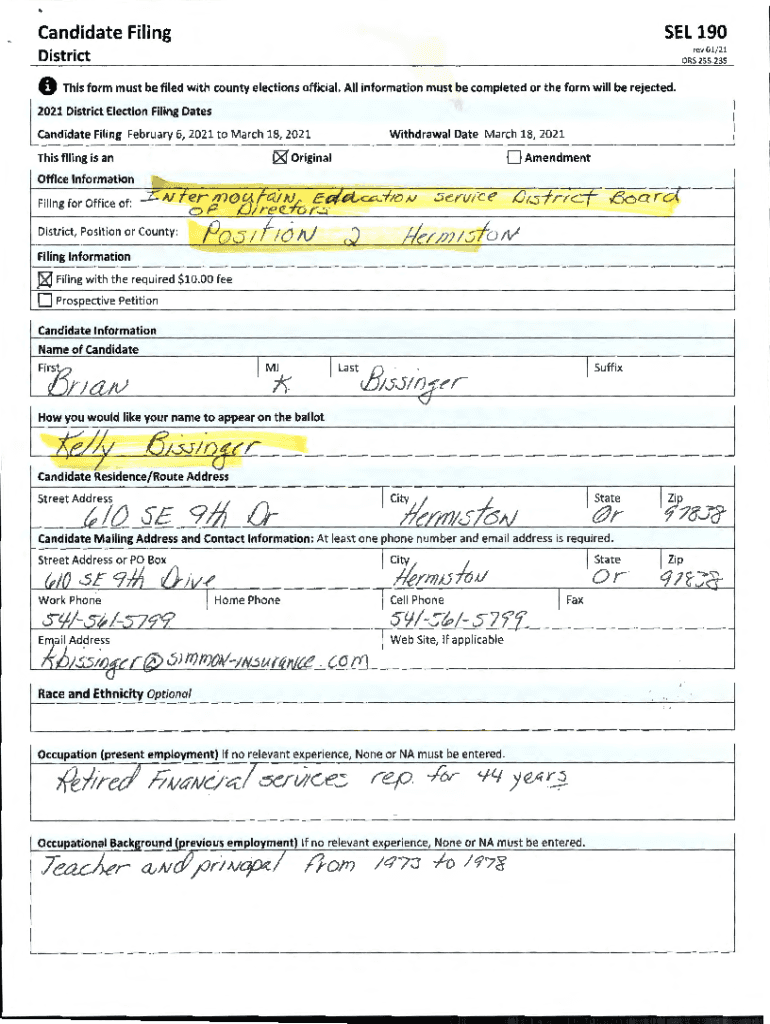 Candidate Filing
SEL 190
District
rev 01/21
ORS 255.235
i This form must be filed with county elections official. All information must be completed or the form will be rejected.
2021 District Election Filing Dates
Candidate Filing February 6, 2021 to March 18, 2021 Withdrawal Date March 18, 2021
This filing is an ☒ Original ☐ Amendment
Office Information
Filing for Office of: Intermountain Education Service District Board
of Directors
District, Position or County: Position 2 Hermiston
Filing Information
☒ Filing with the required $10.00 fee
☐ Prospective Petition
Candidate Information
Name of Candidate
First MI Last Suffix
Brian K. Bissinger
How you would like your name to appear on the ballot
Kelly Bissinger
Candidate Residence/Route Address
Street Address City State Zip
610 SE 9th Dr Hermiston Or 97838
Candidate Mailing Address and Contact Information: At least one phone number and email address is required.
Street Address or PO Box City State Zip
610 SE 9th Drive Hermiston Or 97838
Work Phone Home Phone Cell Phone Fax
541-561-5799 541-561-5799
Email Address Web Site, if applicable
kbissinger@simmon-insurance.com
Race and Ethnicity Optional
Occupation (present employment) If no relevant experience, None or NA must be entered.
Retired Financial services rep. for 44 years
Occupational Background (previous employment) If no relevant experience, None or NA must be entered.
Teacher and principal from 1973 to 1978